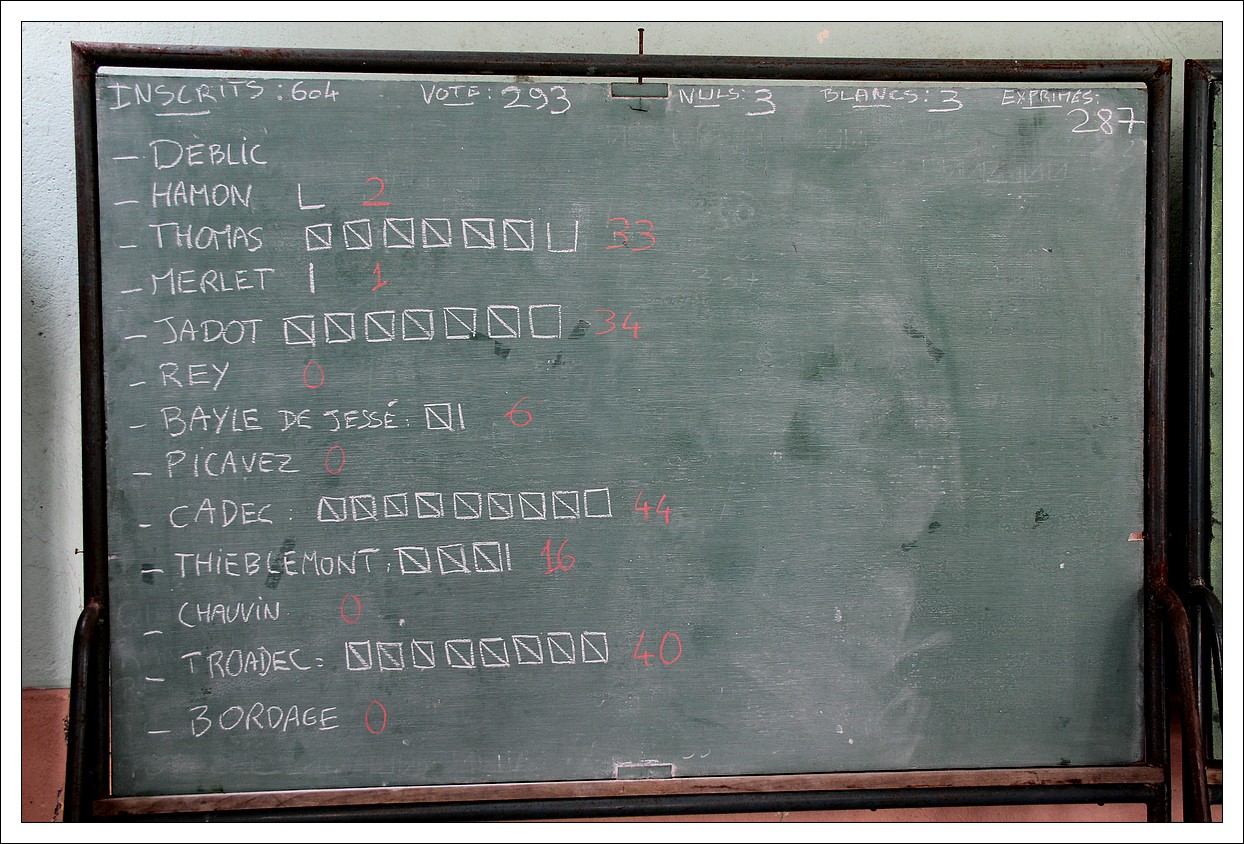 INSCRITS : 604 VOTE : 293 NULS : 3 BLANCS : 3 EXPRIMÉS : 287
- DÈBLIC
- HAMON 2
- THOMAS 33
- MERLET 1
- JADOT 34
- REY 0
- BAYLE DE JESSÉ : 6
- PICAVEZ 0
- CADEC : 44
- THIEBLEMONT : 16
- CHAUVIN 0
- TROADEC : 40
- BORDAGE 0